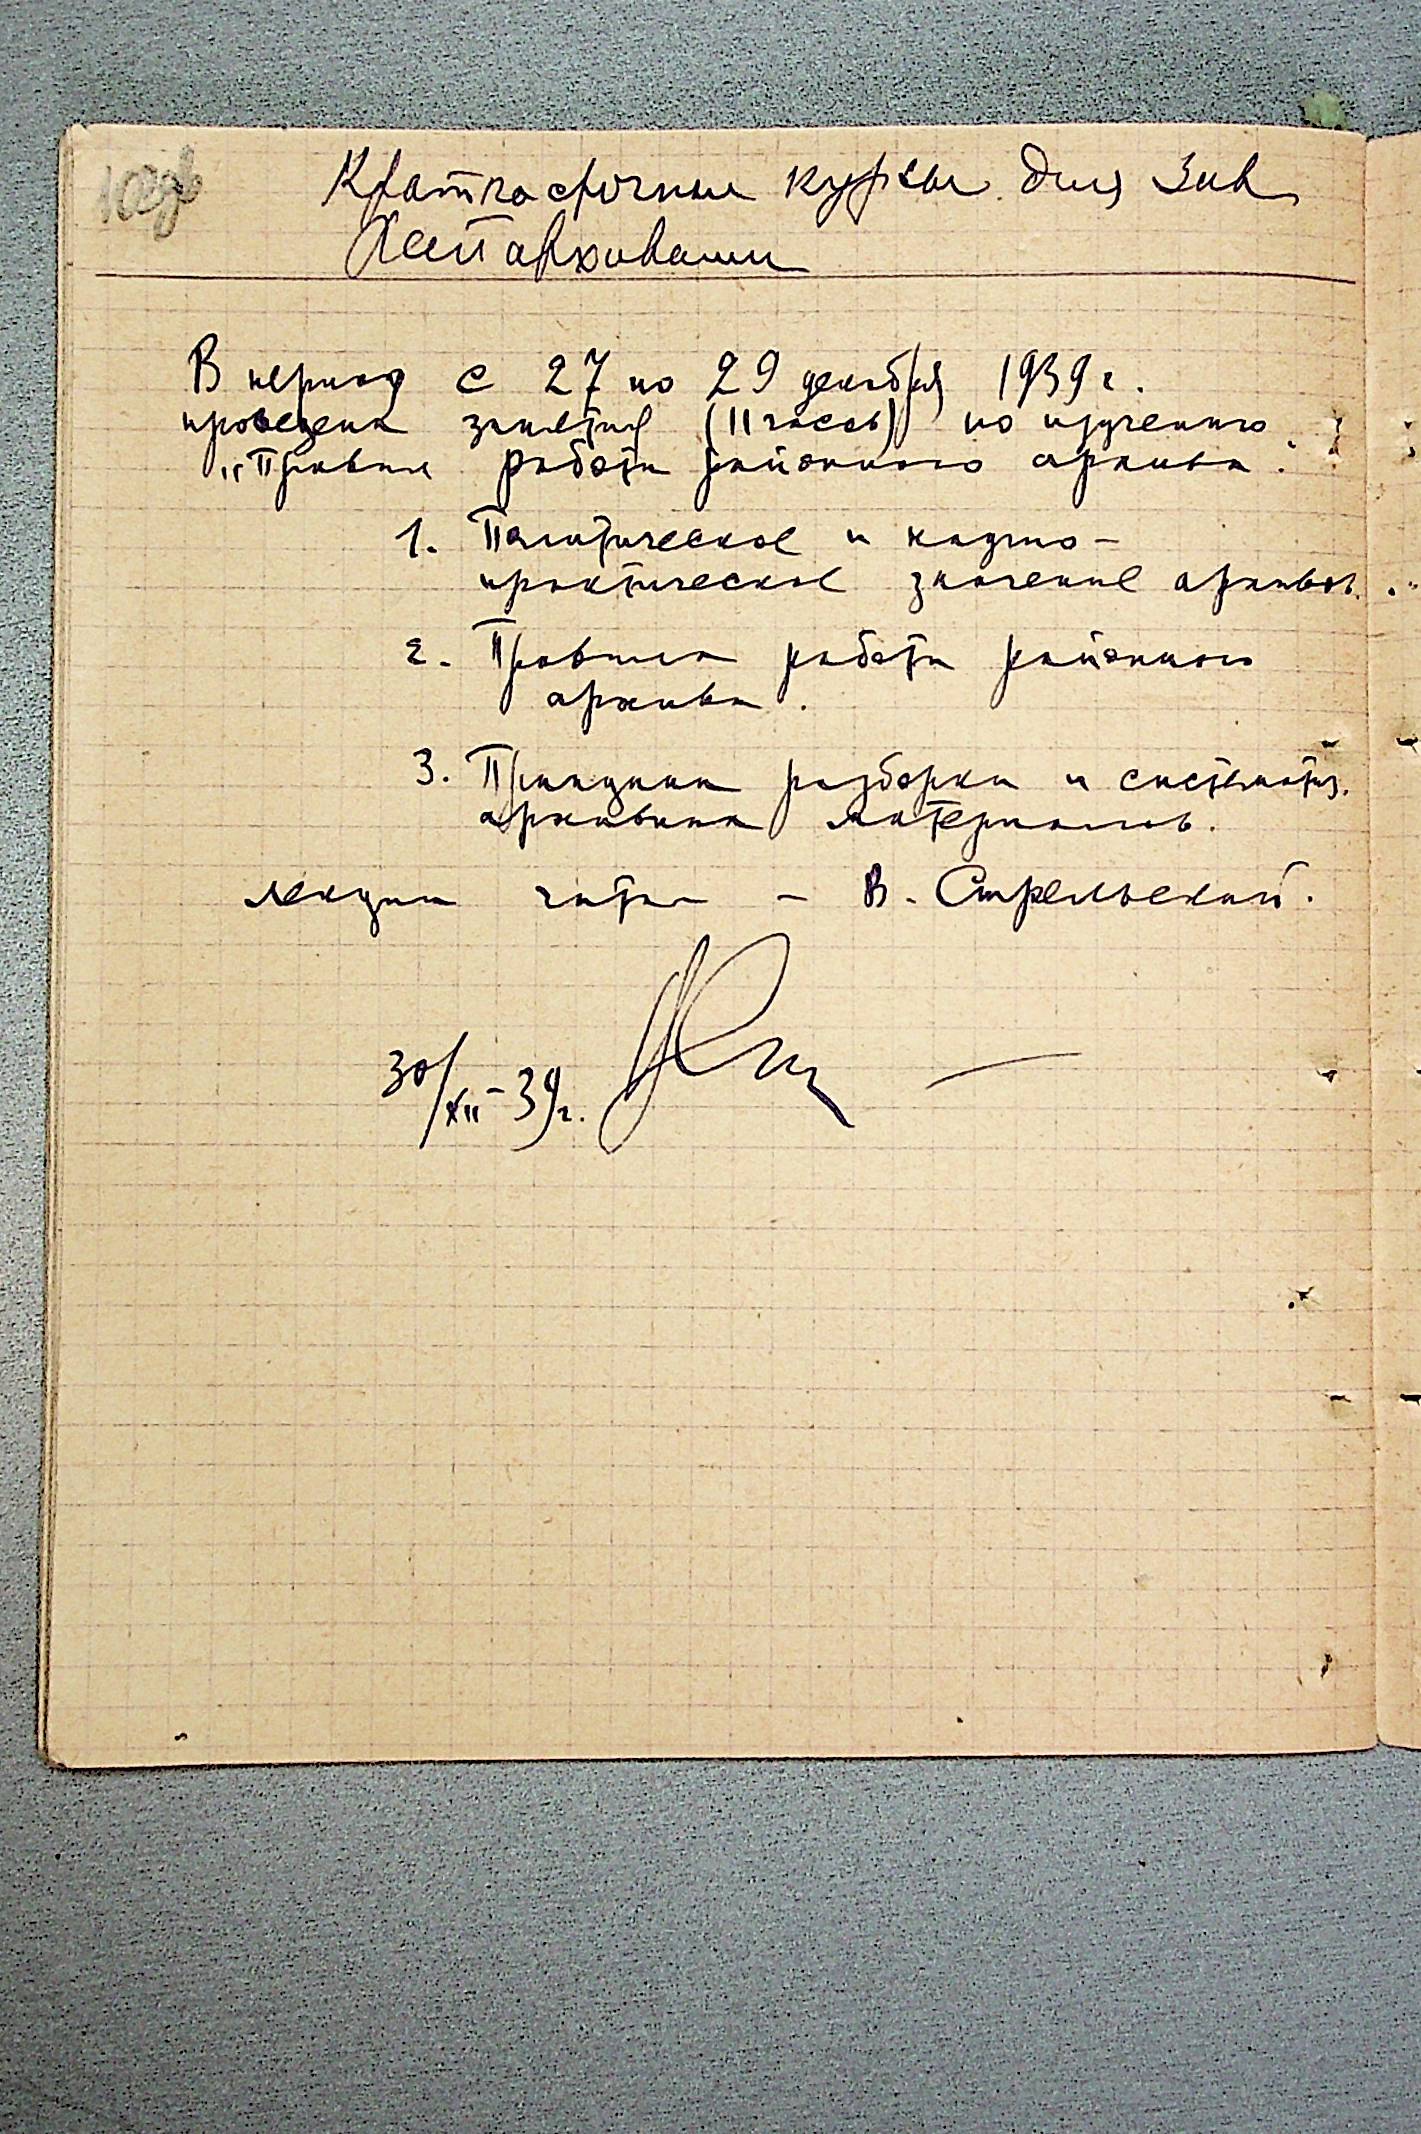 Краткосрочные курсы для Зав.
Райархивами
В период с 27 по 29 декабря 1939 г.
проведены занятия (11 часов) по изучению
"Правил работы районного архива:
1. Политическое и научно-
практическое значение архивов."
2. Правила работы районного
архива.
3. Принципы разборки и систематиз.
архивных материалов.
Лекции читал - В. Стрельский.
30/XII-39г.